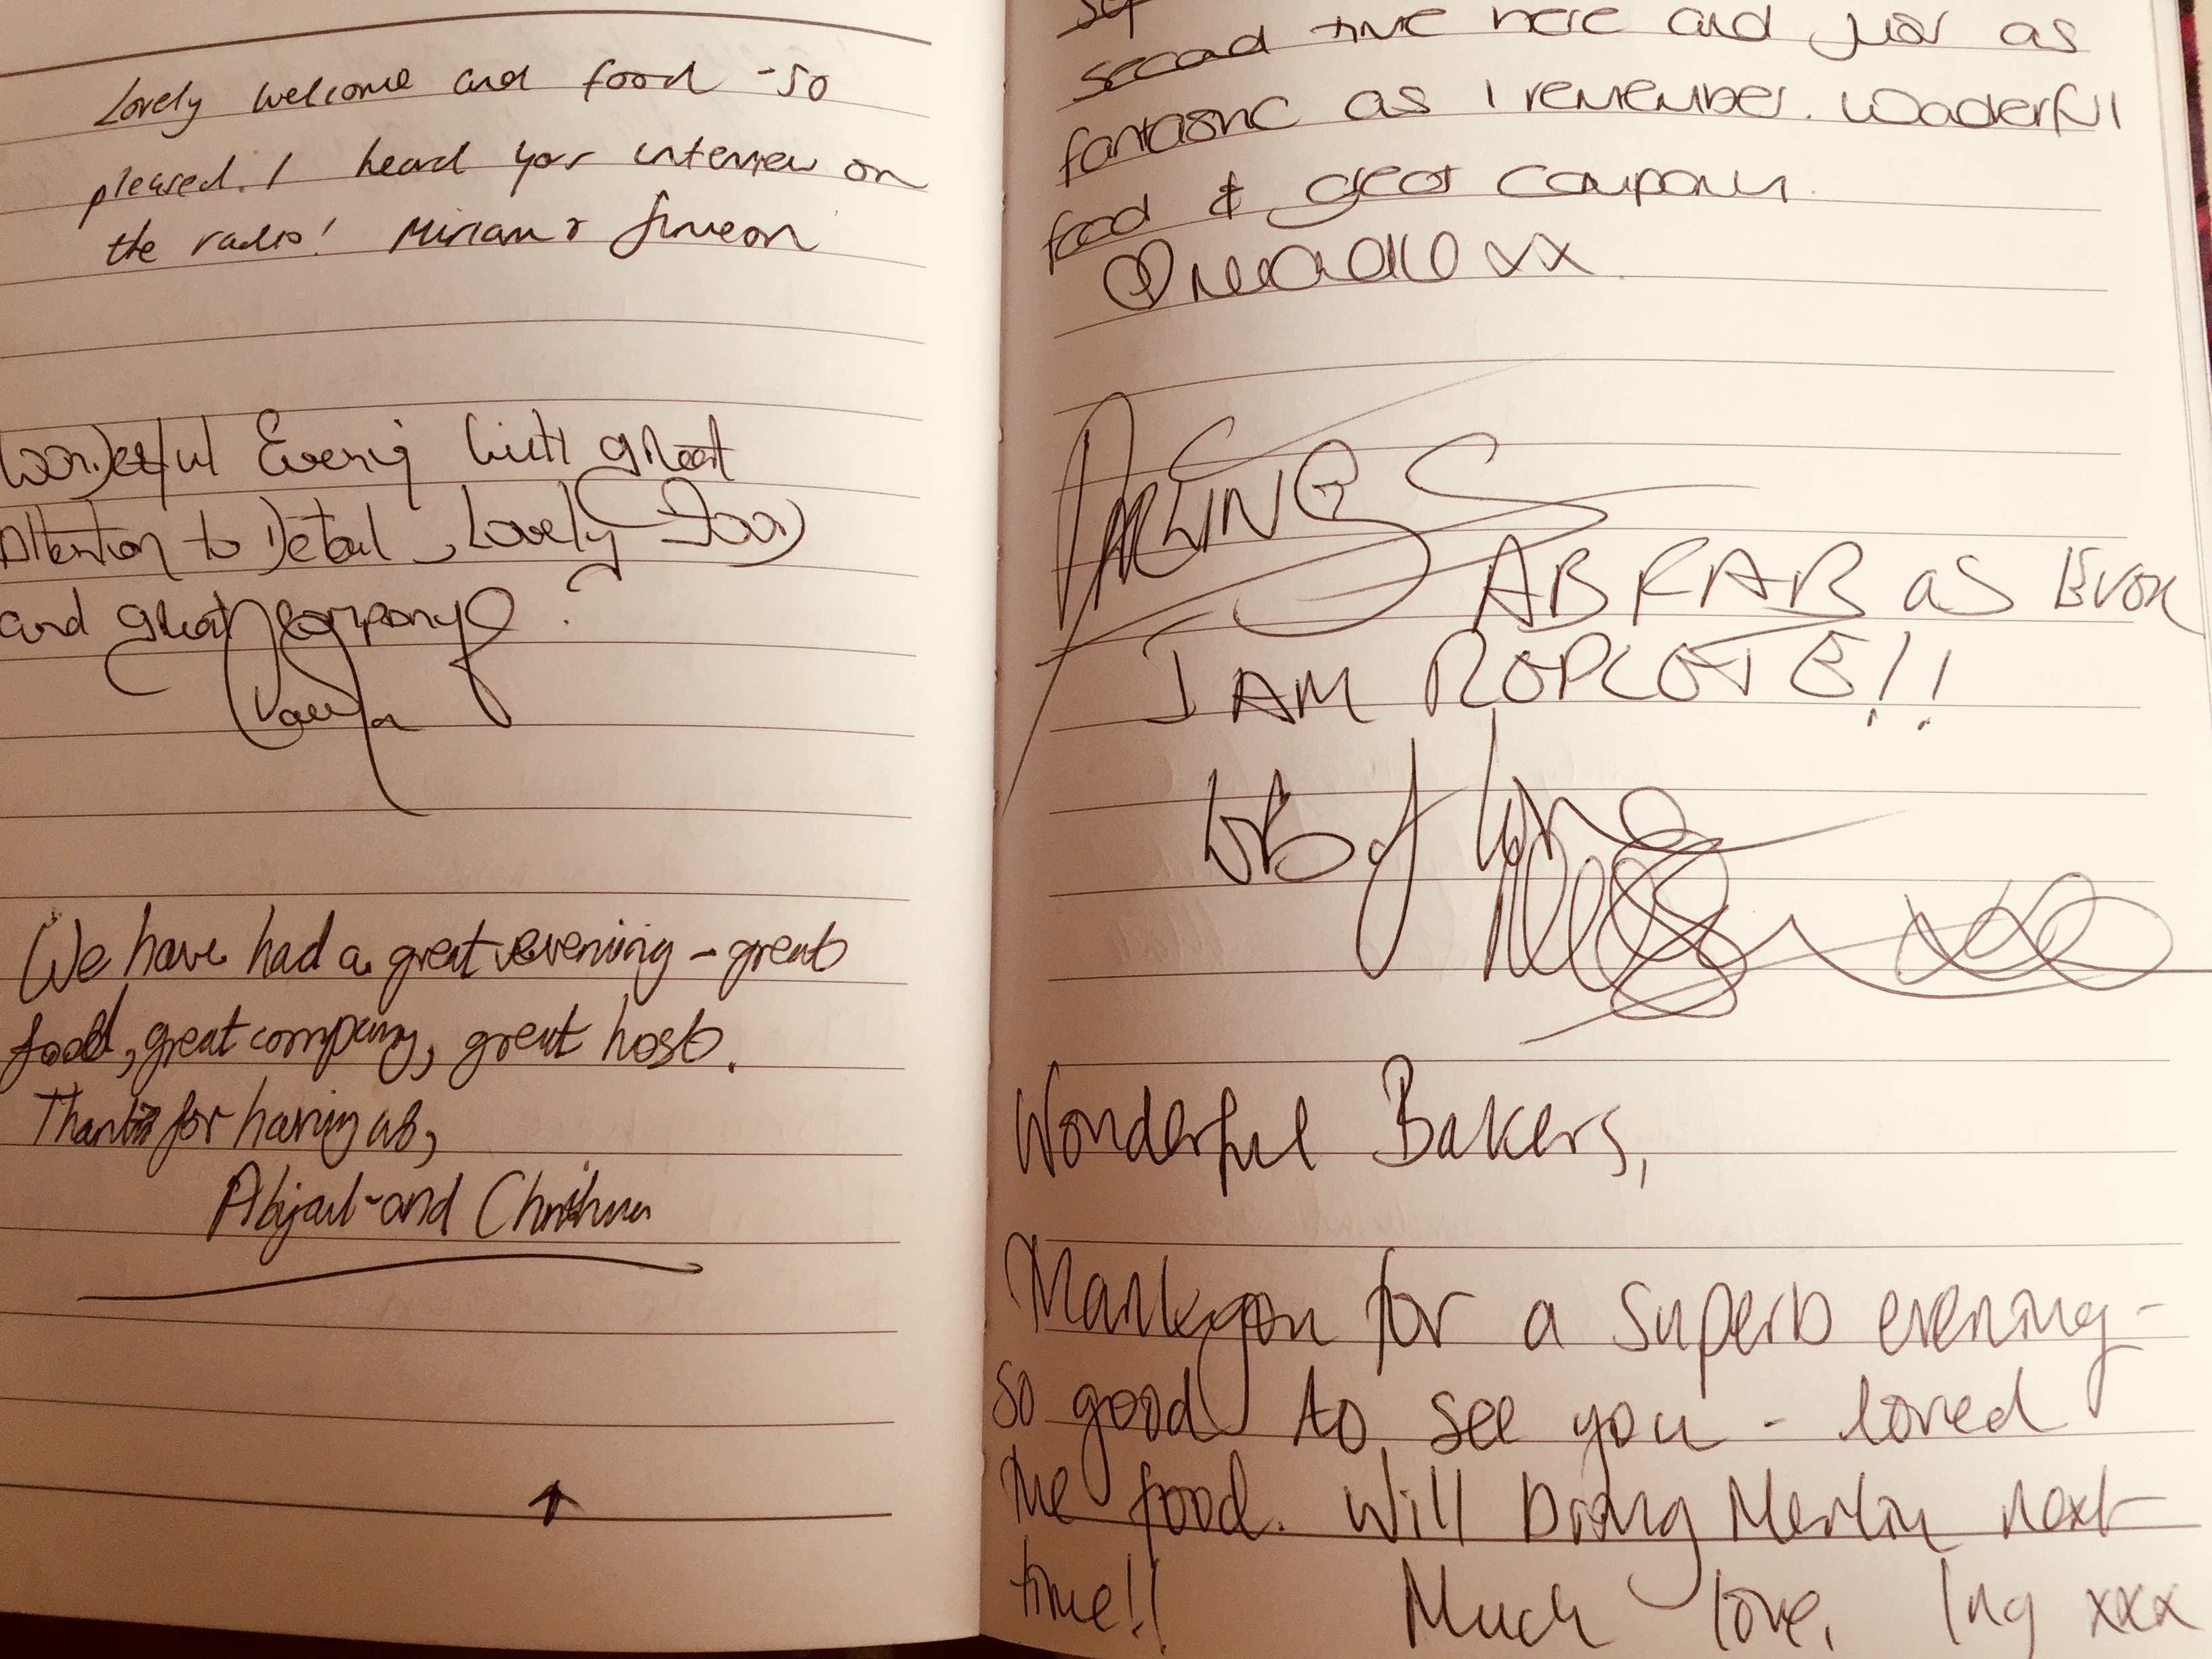 Lovely welcome and food - so
pleased. I heard your interview on
the radio! Miriam & Simeon
Wonderful Evening with great
Attention to Detail, Lovely Food
and great company!
Laura
We have had a great evening - great
food, great company, great host.
Thanks for having us,
Abigail and Christian
second time here and just as
fantastic as I remember. Wonderful
food & great company.
xx
DARLINGS
AB FAB as Ever
I AM REPLETE!!
lots of love
Wonderful Bakers,
Thankyou for a superb evening -
so good to see you - loved
the food. Will bring Merlin next
time!! Much love, Ing xxx